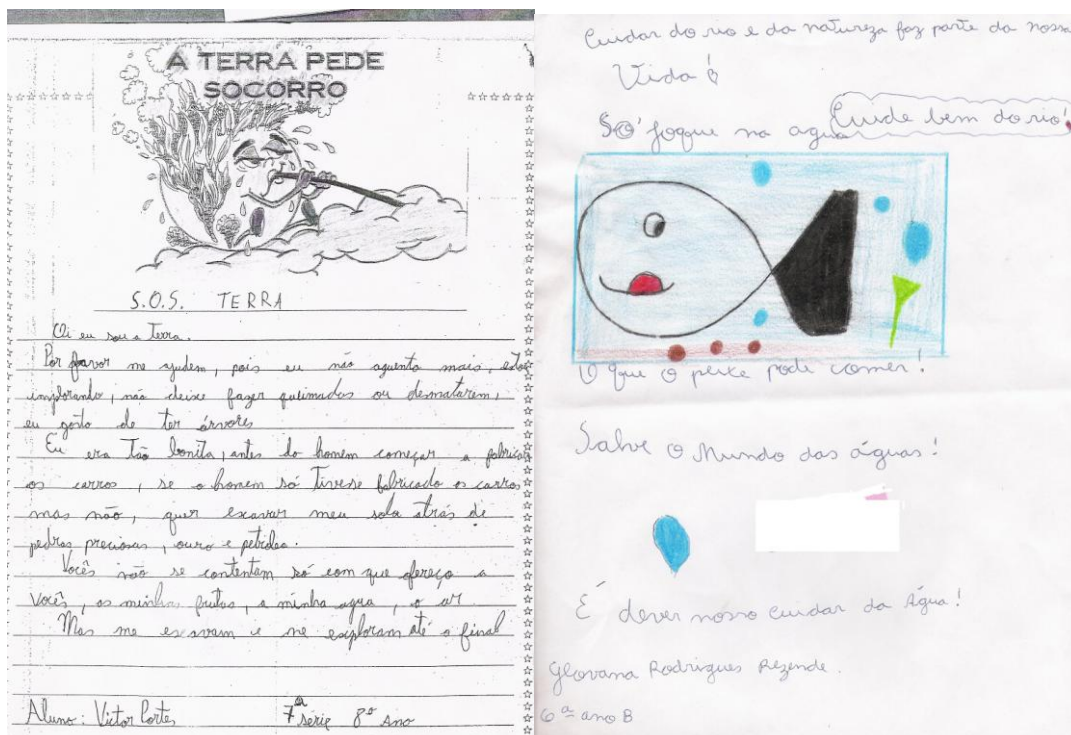 A TERRA PEDE
SOCORRO
S.O.S. TERRA
Oi eu sou a Terra.
Por favor me ajudem, pois eu não aguento mais, estou
implorando, não deixe fazer queimadas ou desmatarem,
eu gosto de ter árvores
Eu era tão bonita, antes do homem começar a fabricar
os carros, se o homem só tivese fabricado os carros
mas não, quer escavar meu solo atrás de
pedras preciosas, ouro e petróleo.
Vocês não se contentam só com que ofereço a
vocês, os minhas frutos, a minha agua, o ar.
Mas me escavam e me exploram até o final
Aluno: Victor Cortes 7ª série 8º Ano
Cuidar do rio e da natureza faz parte da nossa
Vida!
Cuide bem do rio!
Só jogue na agua
O que o peixe pode comer!
Salve o Mundo das águas!
É dever nosso cuidar da Água!
Geovana Rodrigues Rezende.
6ª ano B